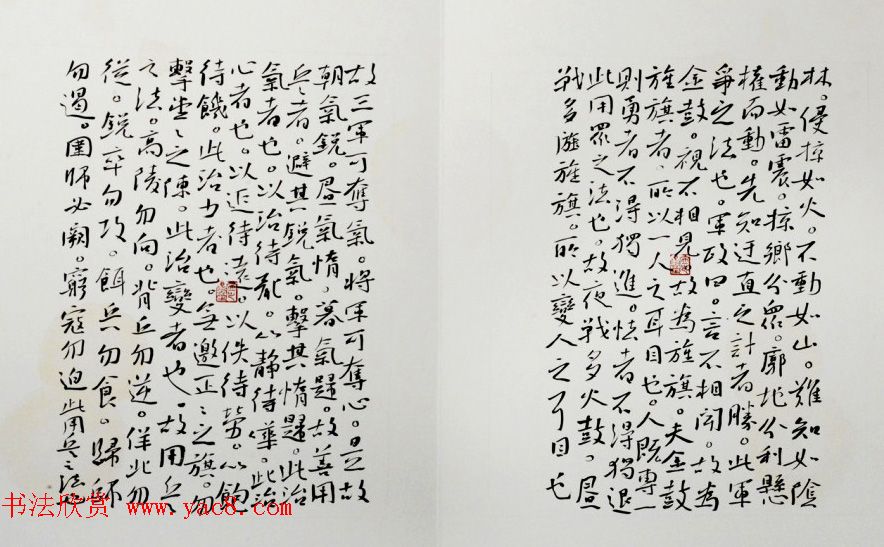 林。侵掠如火。不動如山。難知如陰
動如雷震。掠鄉分眾。廓地分利懸
權而動。先知迂直之計者勝。此軍
爭之法也。軍政曰。言不相聞。故為
金鼓。視不相見故為旌旗。夫金鼓
旌旗者。所以一人之耳目也。人既專一
則勇者不得獨進。怯者不得獨退
此用眾之法也。故夜戰多火鼓。晝
戰多旌旗。所以變人之耳目也
故三軍可奪氣。將軍可奪心。是故
朝氣銳。晝氣惰。暮氣歸。故善用
兵者。避其銳氣。擊其惰歸。此治
氣者也。以治待亂。以靜待譁。此治
心者也。以近待遠。以佚待勞。以飽
待饑。此治力者也。無邀正〻之旗。勿
擊堂〻之陳。此治變者也。故用兵
之法。高陵勿向。背丘勿逆。佯北勿
從。銳卒勿攻。餌兵勿食。歸師
勿遏。圍師必闕。窮寇勿迫此用兵之法也
书法欣赏 www.yac8.com